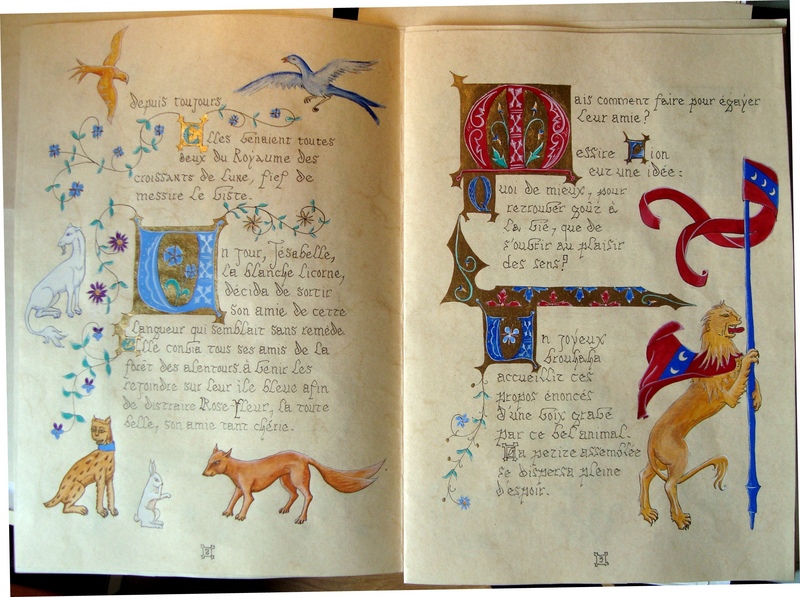 depuis toujours.
Elles venaient toutes
deux du Royaume des
croissants de Lune, fief de
messire Le Viste.
Un jour, Jésabelle,
la blanche licorne,
décida de sortir
son amie de cette
langueur qui semblait sans remède.
Elle convia tous ses amis de la
forêt des alentours à venir les
rejoindre sur leur île bleue afin
de distraire Rose Fleur, la toute
belle, son amie tant chérie.
2
Mais comment faire pour égayer
leur amie?
Messire Lion
eut une idée:
Quoi de mieux, pour
retrouver goût à
la vie, que de
s'ouvrir au plaisir
des sens?
Un joyeux
brouhaha
accueillit ces
propos énoncés
d'une voix grave
par ce bel animal.
La petite assemblée
se dispersa pleine
d'espoir.
3